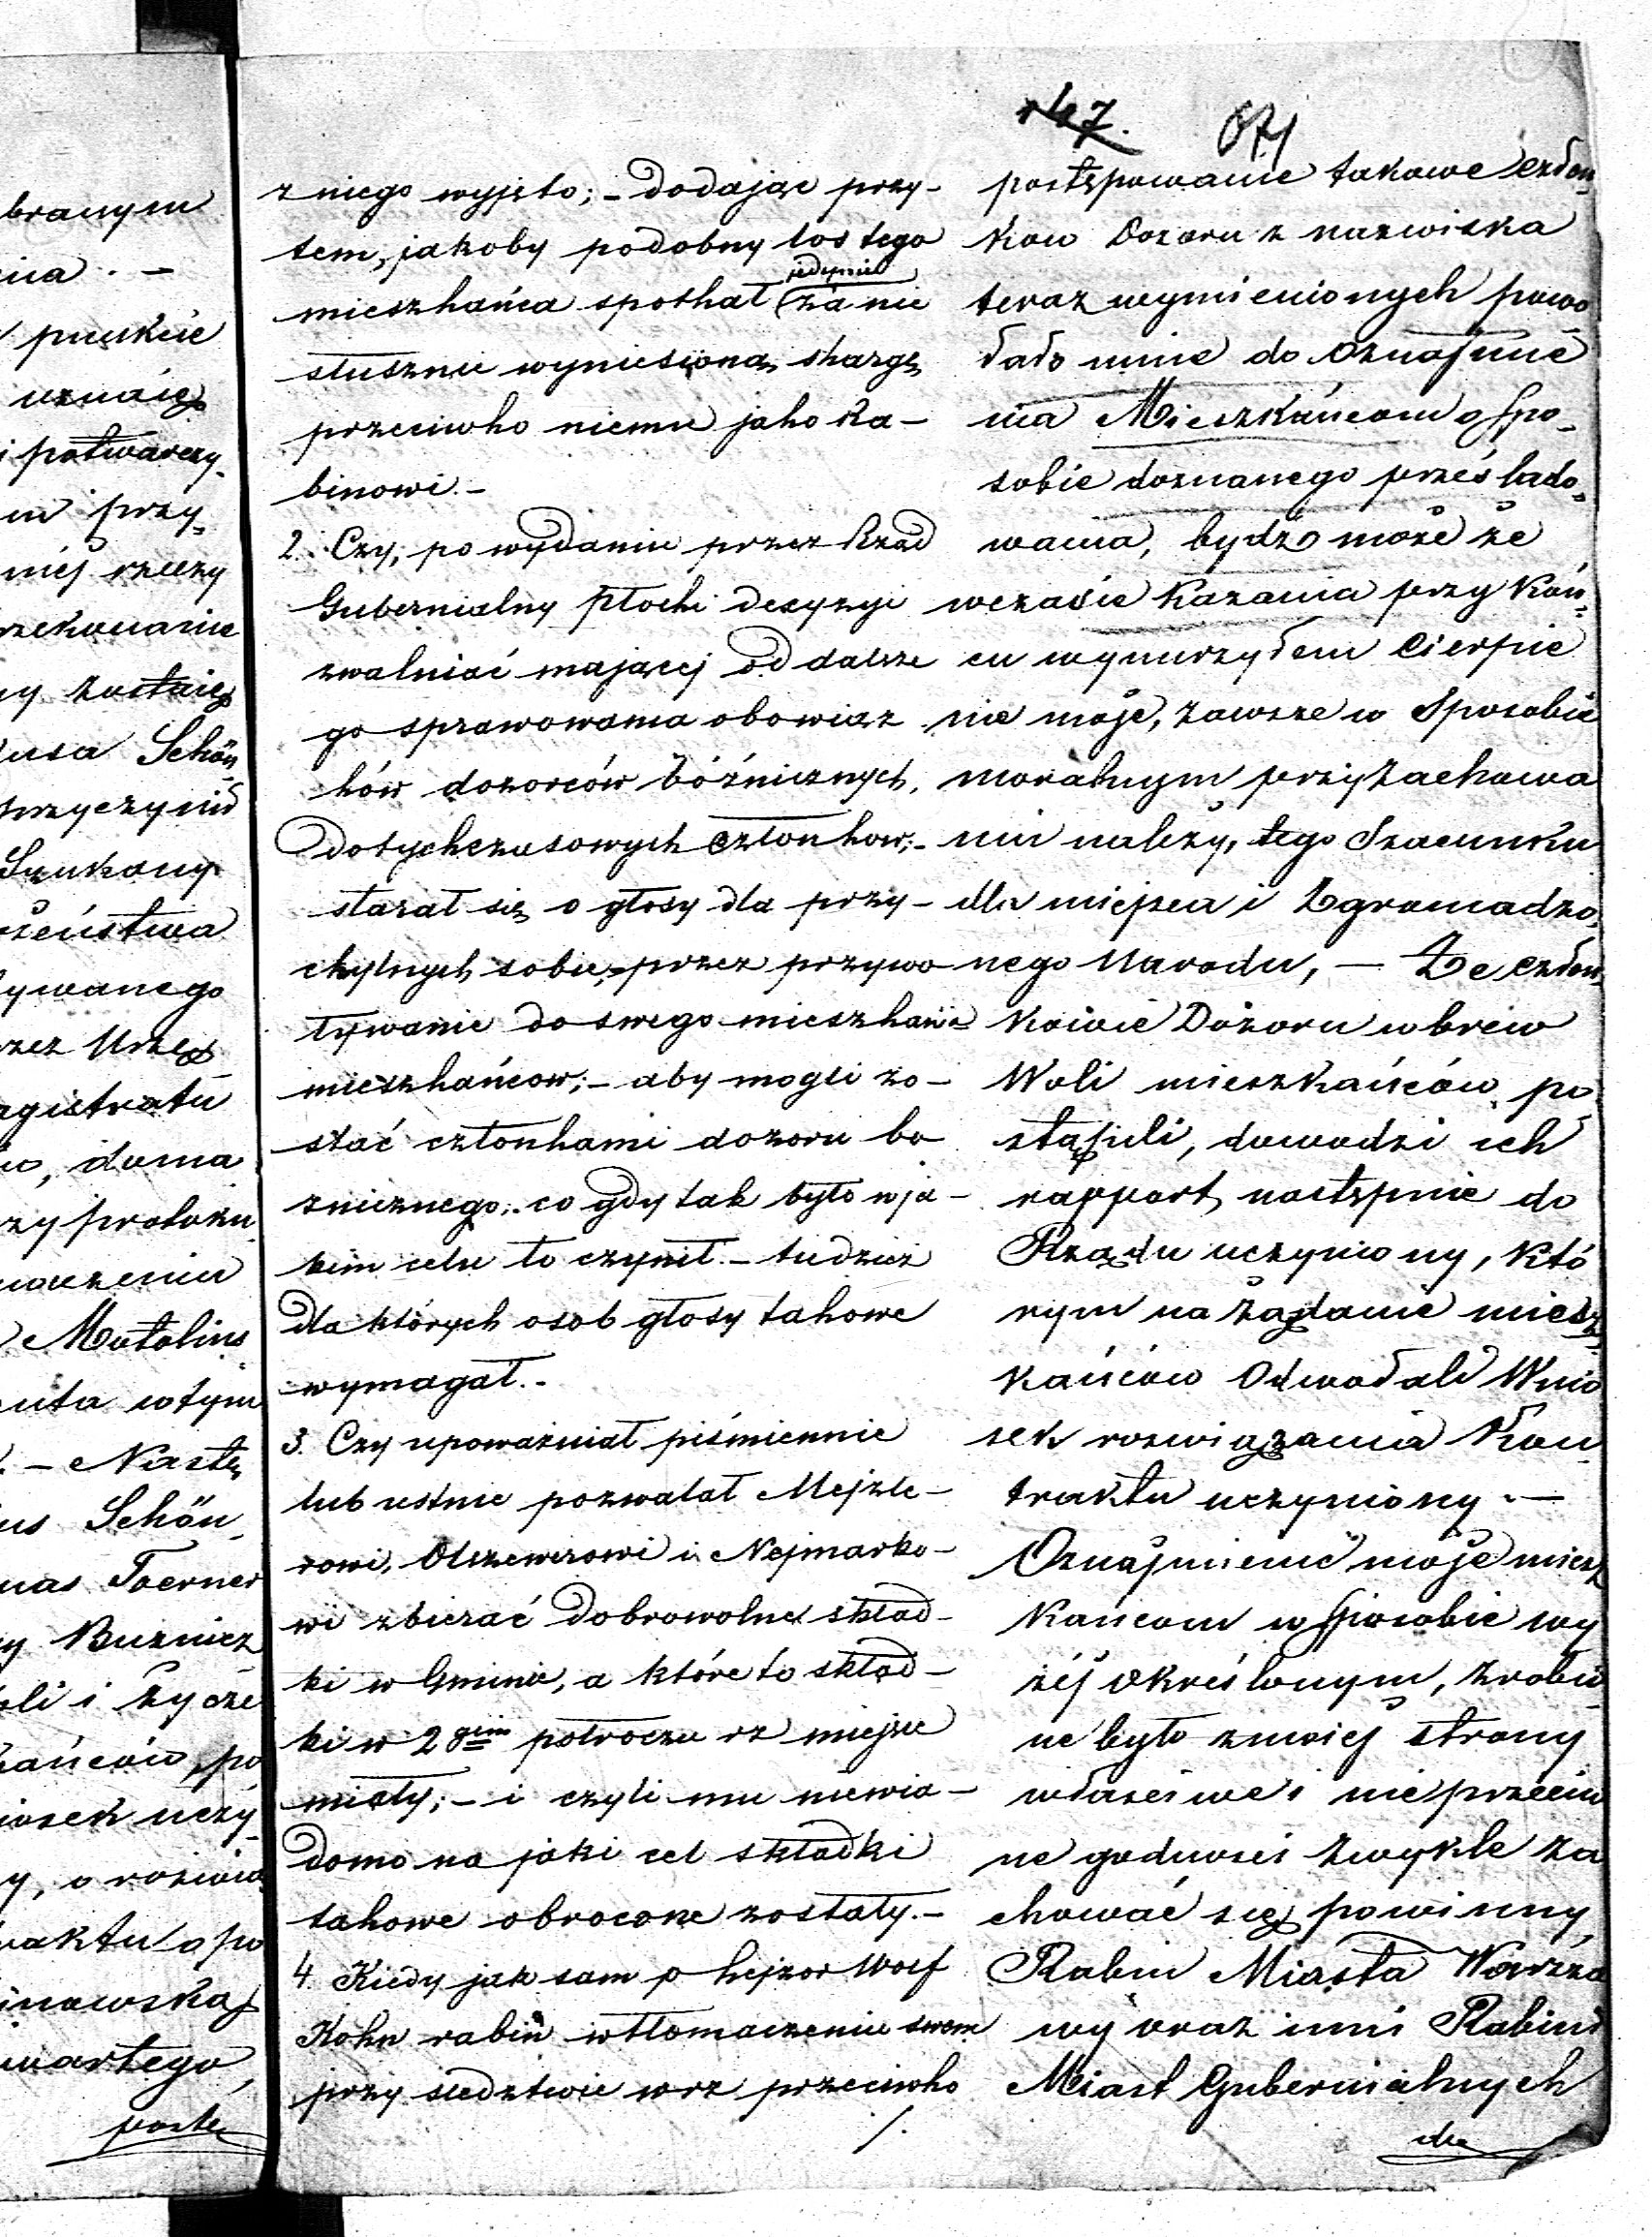 branym
nia . –
punkcie
uznaię
i potwarczy-
m przy-
niéj rzeczy
rzekonanie
ny zostaię
usa Schön
przyczynił
Szukany
żeństwa
ływanego
rzez Urzę-
agistratu
, duma
zy protoku
uaczeniu
Matolins
uta w tym
. – Nastę
us Schön-
nas Toerner
y Buznicz
oli i życze
kańców, po
iosek uczy-
y, o rozwią
raktu o po
inowską
wartego,
postę
107. 671
z niego wyjęto; – dodając przy-
tem, jakoby podobny los tego
jedynie
mieszkańca spotkał za nie
słusznie wyniesioną skargę
przeciwko niemu jako Ra-
binowi. –
2. Czy, po wydaniu przez Rząd
Gubernialny Płocki decyzyi
zwalniać mającej od dalsze
go sprawowania obowiąz
ków dozorców bóźnicznych,
dotychczasowych członkow; –
starał się o głosy dla przy-
chylnych sobie, przez przywo
ływanie do swego mieszkania
mieszkańcow; – aby mogli zo-
stać członkami dozoru bo
znicznego; co gdy tak było w ja-
kim celu to czynił. – tudzież
dla których osob głosy takowe
wymagał. –
3. Czy upoważniał piśmiennie
lub ustnie pozwalał Mejzle-
rowi, Olszewerowi i Nejmarko-
wi zbierać dobrowolne skład-
ki w Gminie, a które to skład-
ki w 2gim połroczu rz miejsce
miały; – i czyli mu niewia-
domo na jaki cel składki
takowe obrocone zostały. –
4. Kiedy jak sam p Lejzor Wolf
Kohn rabin w tłomaczeniu swem
przy śledztwie w rz przeciwko
/.
postępowanie takowe człon-
kow Dozoru z nazwiska
teraz wymienionych powo
dało mnie do oznajmie
nia Mieszkańcom o spo-
sobie doznanego prześlado-
wania, bydź może że
wczasie kazania przy koń-
cu wynurzyłem cierpie
nie moje, zawsze w Sposobie
moralnym przy zachowa
niu należytego Szacunku
dla miejsca i Zgromadzo-
nego Narodu, – Że człon-
kowie Dozoru wbrew
Woli mieszkańców po-
stąpili, dowodzi ich
rapport następnie do
Rządu uczyniony, któ
rym na żądanie miesz-
kańców Odwołali Wnio
sek rozwiązania Kon-
traktu uczyniony. –
Oznajmienie moje miesz
kańcom w sposobie wy
żéj określonym, zrobio-
ne było z moiej strony
właściwe i nie przeciw
ne godności zwykle za
chować się powinny,
Rabin Miasta Warsza
wy oraz inni Rabini
Miast Gubernialnych
dla